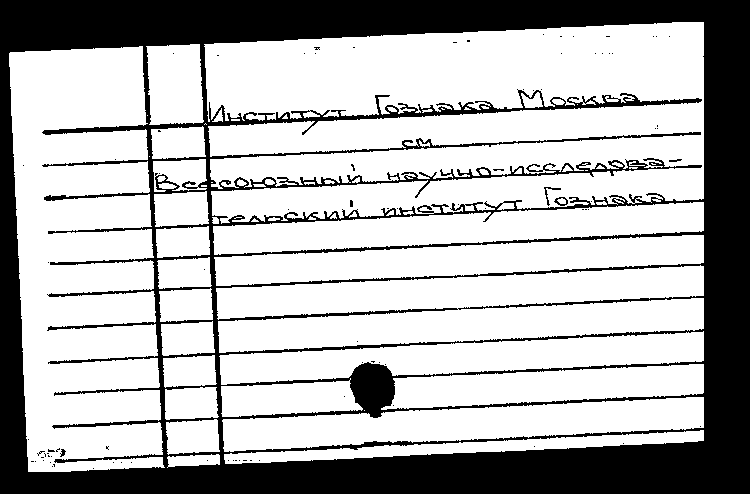 Институт Гознака. Москва
см
Всесоюзный научно-исследова-
тельский институт Гознака.